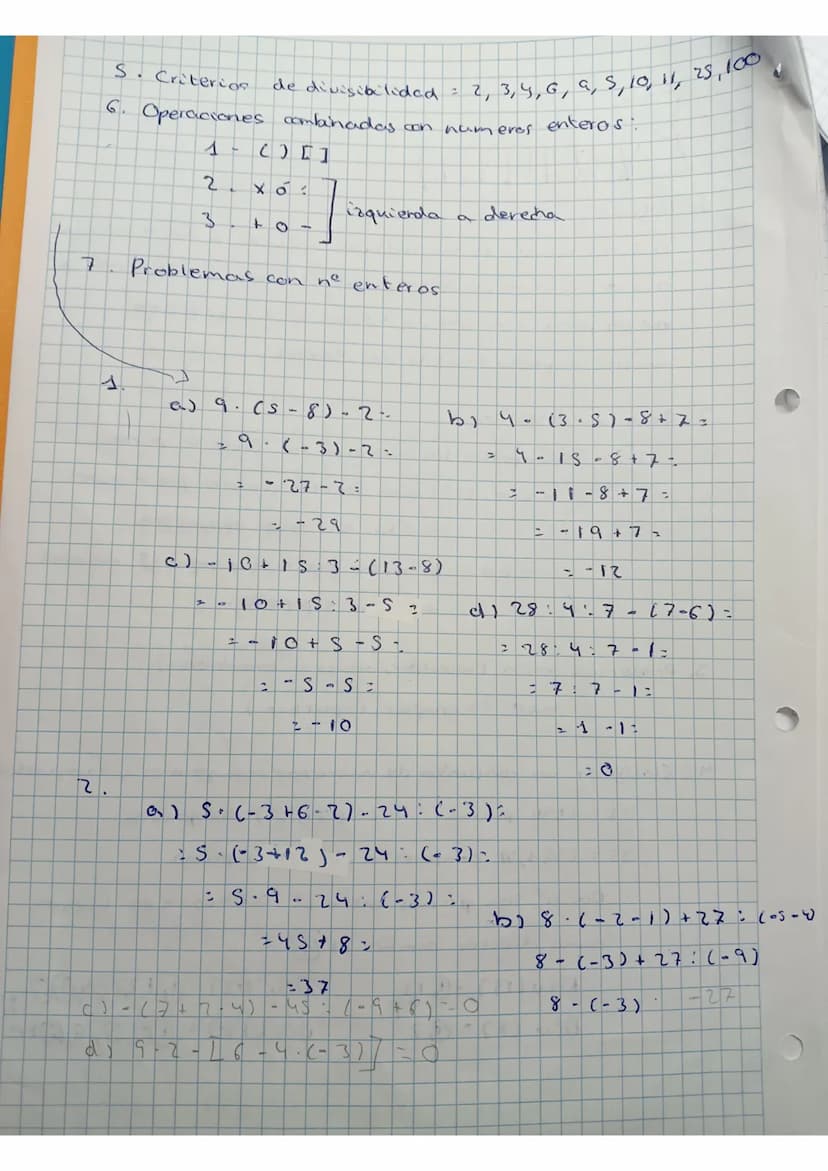 5. Criterios de divisibilidad = 2, 3, 4, 6, 9, 5, 10, 11, 25, 100
6. Operaciones combinadas con numeros enteros:
1 - ( ) [ ]
2. x ó :
3. + o -
izquierda a derecha
7. Problemas con nº enteros
1.
a) 9 · (5 - 8) - 2 =
= 9 · (-3) - 2 =
= -27 - 2 =
= -29
b) 4 - (3 · 5) - 8 + 7 =
= 4 - 15 - 8 + 7 =
= -11 - 8 + 7 =
= -19 + 7 =
= -12
c) -10 + 15 : 3 - (13 - 8)
= -10 + 15 : 3 - 5 =
= -10 + 5 - 5 =
= -5 - 5 =
= -10
d) 28 : 4 : 7 - (7-6) =
= 28 : 4 : 7 - 1 =
= 7 : 7 - 1 =
= 1 - 1 =
= 0
2.
a) 5 · (-3 + 6 · 2) - 24 : (-3) =
= 5 · (-3 + 12) - 24 : (-3) =
= 5 · 9 - 24 : (-3) =
= 45 + 8 =
= 37
b) 8 · (-2 - 1) + 27 : (-5 - 4)
8 - (-3) + 27 : (-9)
8 - (-3) -27
c) -(7 + 2 · 4) - 45 : (-9 + 6) = 0
d) 9 · 2 - [6 - 4 · (-3)] = 0